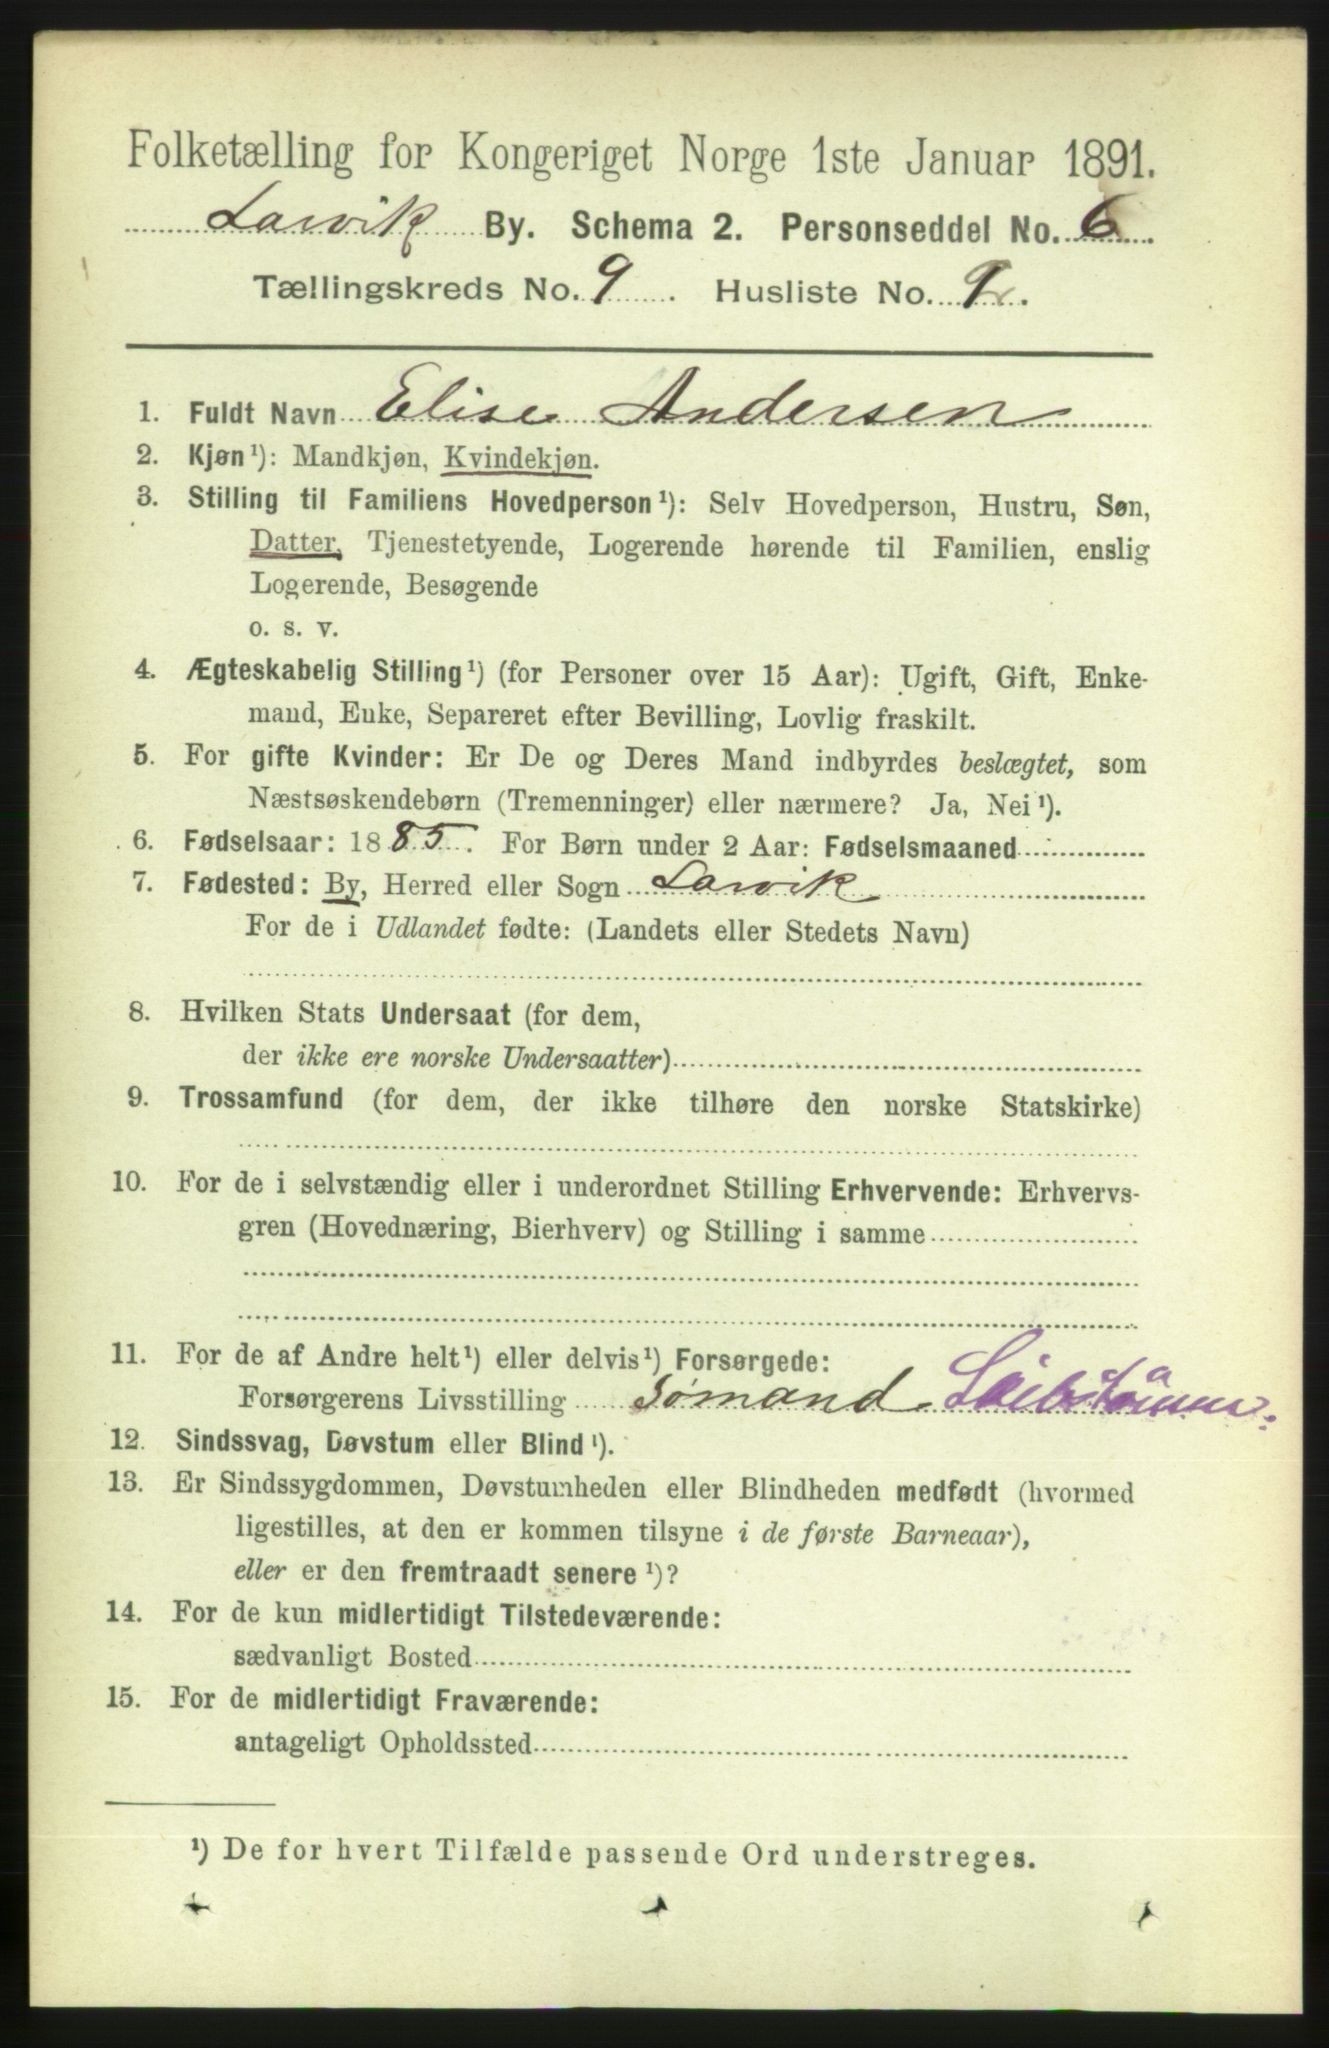 Folketælling for Kongeriget Norge 1ste Januar 1891.
Larvik By. Schema 2. Personseddel No. 6.
Tællingskreds No. 9. Husliste No. 9.
1. Fuldt Navn Elise Andersen
2. Kjøn¹): Mandkjøn, Kvindekjøn.
3. Stilling til Familiens Hovedperson¹): Selv Hovedperson, Hustru, Søn,
Datter, Tjenestetyende, Logerende hørende til Familien, enslig
Logerende, Besøgende
o. s. v.
4. Ægteskabelig Stilling¹) (for Personer over 15 Aar): Ugift, Gift, Enke-
mand, Enke, Separeret efter Bevilling, Lovlig fraskilt.
5. For gifte Kvinder: Er De og Deres Mand indbyrdes beslægtet, som
Næstsøskendebørn (Tremenninger) eller nærmere? Ja, Nei¹).
6. Fødselsaar: 1885. For Børn under 2 Aar: Fødselsmaaned
7. Fødested: By, Herred eller Sogn Larvik
For de i Udlandet fødte: (Landets eller Stedets Navn)
8. Hvilken Stats Undersaat (for dem,
der ikke ere norske Undersaatter)
9. Trossamfund (for dem, der ikke tilhøre den norske Statskirke)
10. For de i selvstændig eller i underordnet Stilling Erhvervende: Erhvervs-
gren (Hovednæring, Bierhverv) og Stilling i samme
11. For de af Andre helt¹) eller delvis¹) Forsørgede:
Forsørgerens Livsstilling Sømand
12. Sindssvag, Døvstum eller Blind¹).
13. Er Sindssygdommen, Døvstumheden eller Blindheden medfødt (hvormed
ligestilles, at den er kommen tilsyne i de første Barneaar),
eller er den fremtraadt senere¹)?
14. For de kun midlertidigt Tilstedeværende:
sædvanligt Bosted
15. For de midlertidigt Fraværende:
antageligt Opholdssted
¹) De for hvert Tilfælde passende Ord understreges.